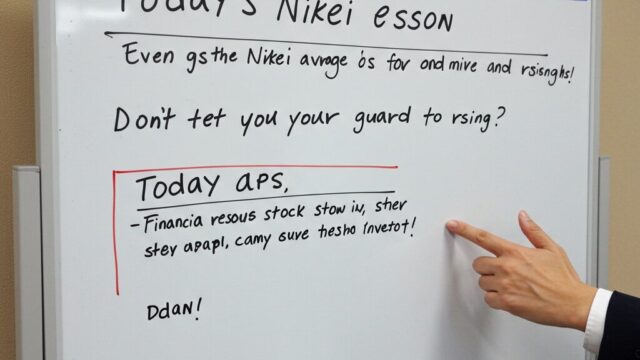 Today's Nikei esson
Even gs the Nikei avrage is for ond mire and rsisnghs!
Don't tet you your guard to rsing?
Today aps,
- Financia resous stock stow in, ster
ster apapl, camy sure hesho invetot!
DdaN!